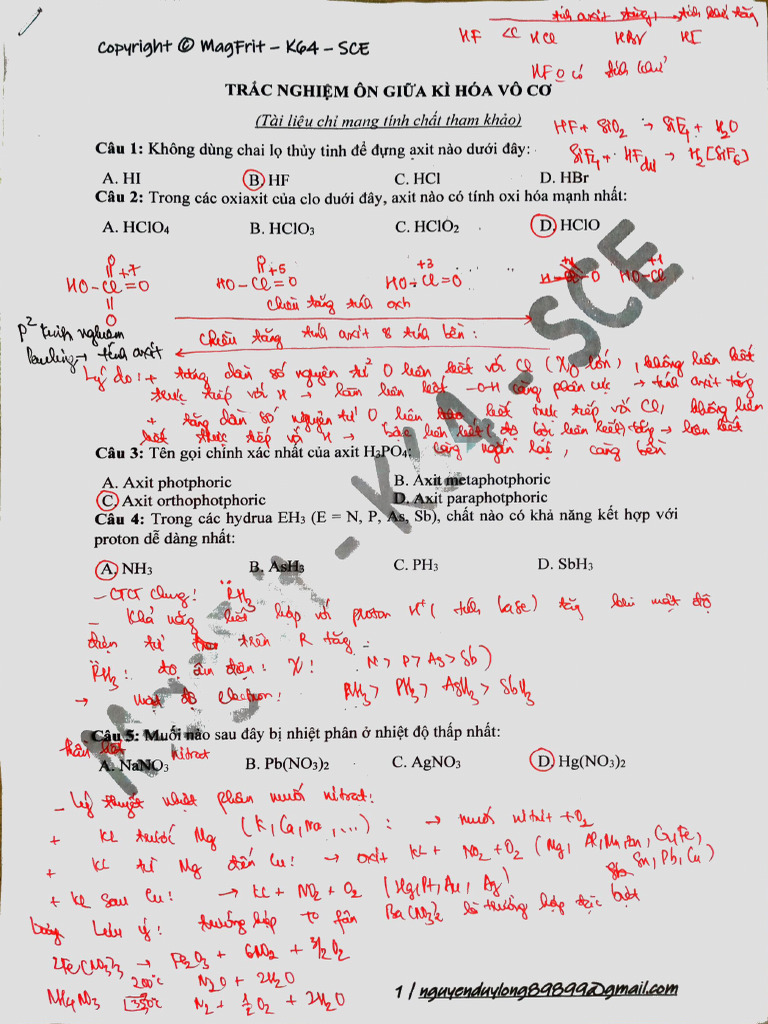 tính axit tăng, tính khử tăng
HF << HCl HBr HI
HF o có tính khử
Copyright © MagFrit – K64 – SCE
TRẮC NGHIỆM ÔN GIỮA KÌ HÓA VÔ CƠ
(Tài liệu chỉ mang tính chất tham khảo)
HF + SiO2 → SiF4 + H2O
SiF4 + HF dư → H2[SiF6]
Câu 1: Không dùng chai lọ thủy tinh để đựng axit nào dưới đây:
A. HI B. HF C. HCl D. HBr
Câu 2: Trong các oxiaxit của clo dưới đây, axit nào có tính oxi hóa mạnh nhất:
A. HClO4 B. HClO3 C. HClO2 D. HClO
O O
HO-Cl=O +7 HO-Cl=O +5 HO-Cl=O +3 HO-Cl +1
O
chiều tăng tính oxh
chiều tăng tính axit & tính bền:
p² kinh nghiệm
Pauling → tính axit
Lý do: + tăng dần số nguyên tử O liên kết với Cl (χ lớn), không liên kết
trực tiếp với H → làm liên kết -O-H càng phân cực → tính axit tăng
+ tăng dần số nguyên tử O liên kết trực tiếp với Cl, không liên
kết trực tiếp với H → bậc liên kết (độ bội liên kết) tăng → liên kết
càng ngắn lại, càng bền
Câu 3: Tên gọi chính xác nhất của axit H3PO4:
A. Axit photphoric B. Axit metaphotphoric
C. Axit orthophotphoric D. Axit paraphotphoric
Câu 4: Trong các hydrua EH3 (E = N, P, As, Sb), chất nào có khả năng kết hợp với
proton dễ dàng nhất:
A. NH3 B. AsH3 C. PH3 D. SbH3
- CTCT chung: RH3
- Khả năng kết hợp với proton H+ (tính base) tăng khi mật độ
điện tử trên R tăng
RH3: độ âm điện: χ: N > P > As > Sb)
→ mật độ electron: NH3 > PH3 > AsH3 > SbH3
Câu 5: Muối nào sau đây bị nhiệt phân ở nhiệt độ thấp nhất:
nitrat
A. NaNO3 B. Pb(NO3)2 C. AgNO3 D. Hg(NO3)2
- Lý thuyết nhiệt phân muối nitrat:
+ KL trước Mg (K, Ca, Na, ...): → muối nitrit + O2
+ KL từ Mg đến Cu: → oxit KL + NO2 + O2 (Mg, Al, Mn, Zn, Cr, Fe,
Sn, Pb, Cu)
+ KL sau Cu: → KL + NO2 + O2 (Hg, Pt, Au, Ag)
Lưu ý: trường hợp Ba(NO3)2 là trường hợp đặc biệt
2Fe(NO3)3 → Fe2O3 + 6NO2 + 3/2O2
NH4NO3 200°C N2O + 2H2O
350°C N2 + 1/2 O2 + 2H2O
Magfrit - K64 - SCE
1 / nguyenduylong89899@gmail.com